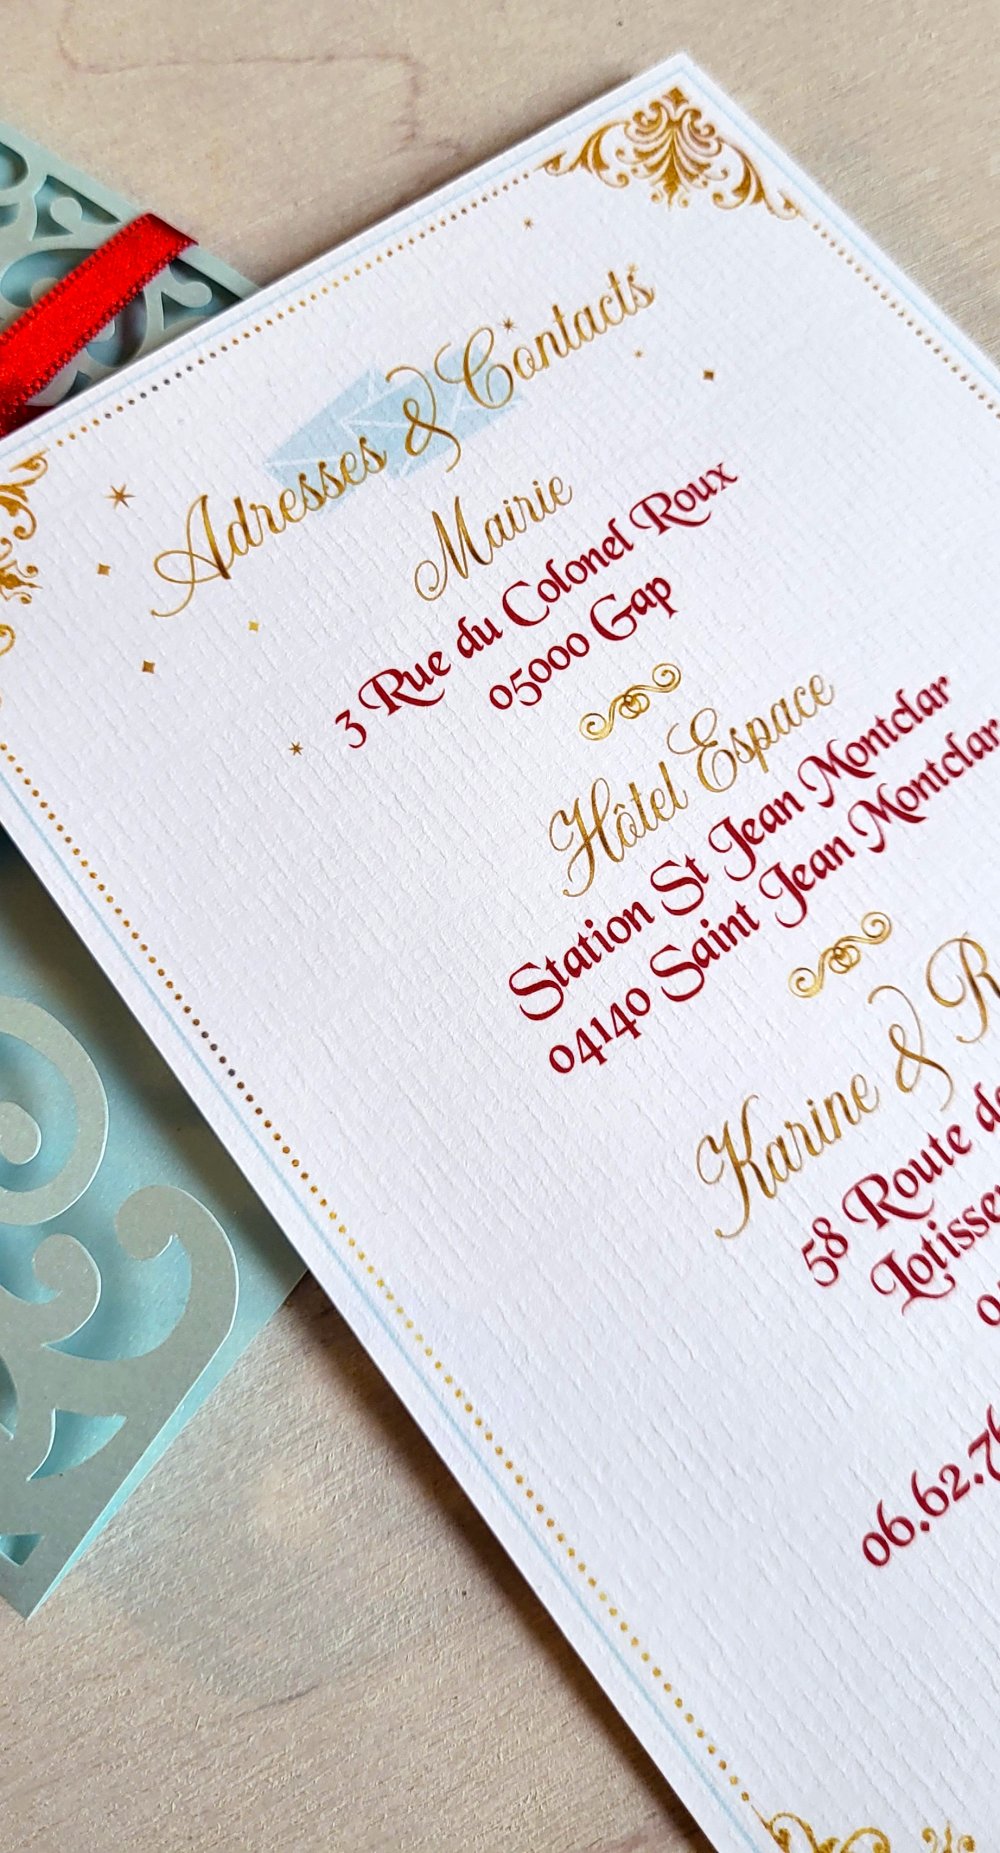 Adresses & Contacts
Mairie
3 Rue du Colonel Roux
05000 Gap
Hôtel Espace
Station St Jean Montclar
04140 Saint Jean Montclar
Karine & R
58 Route de
Lotisse
06.62.7